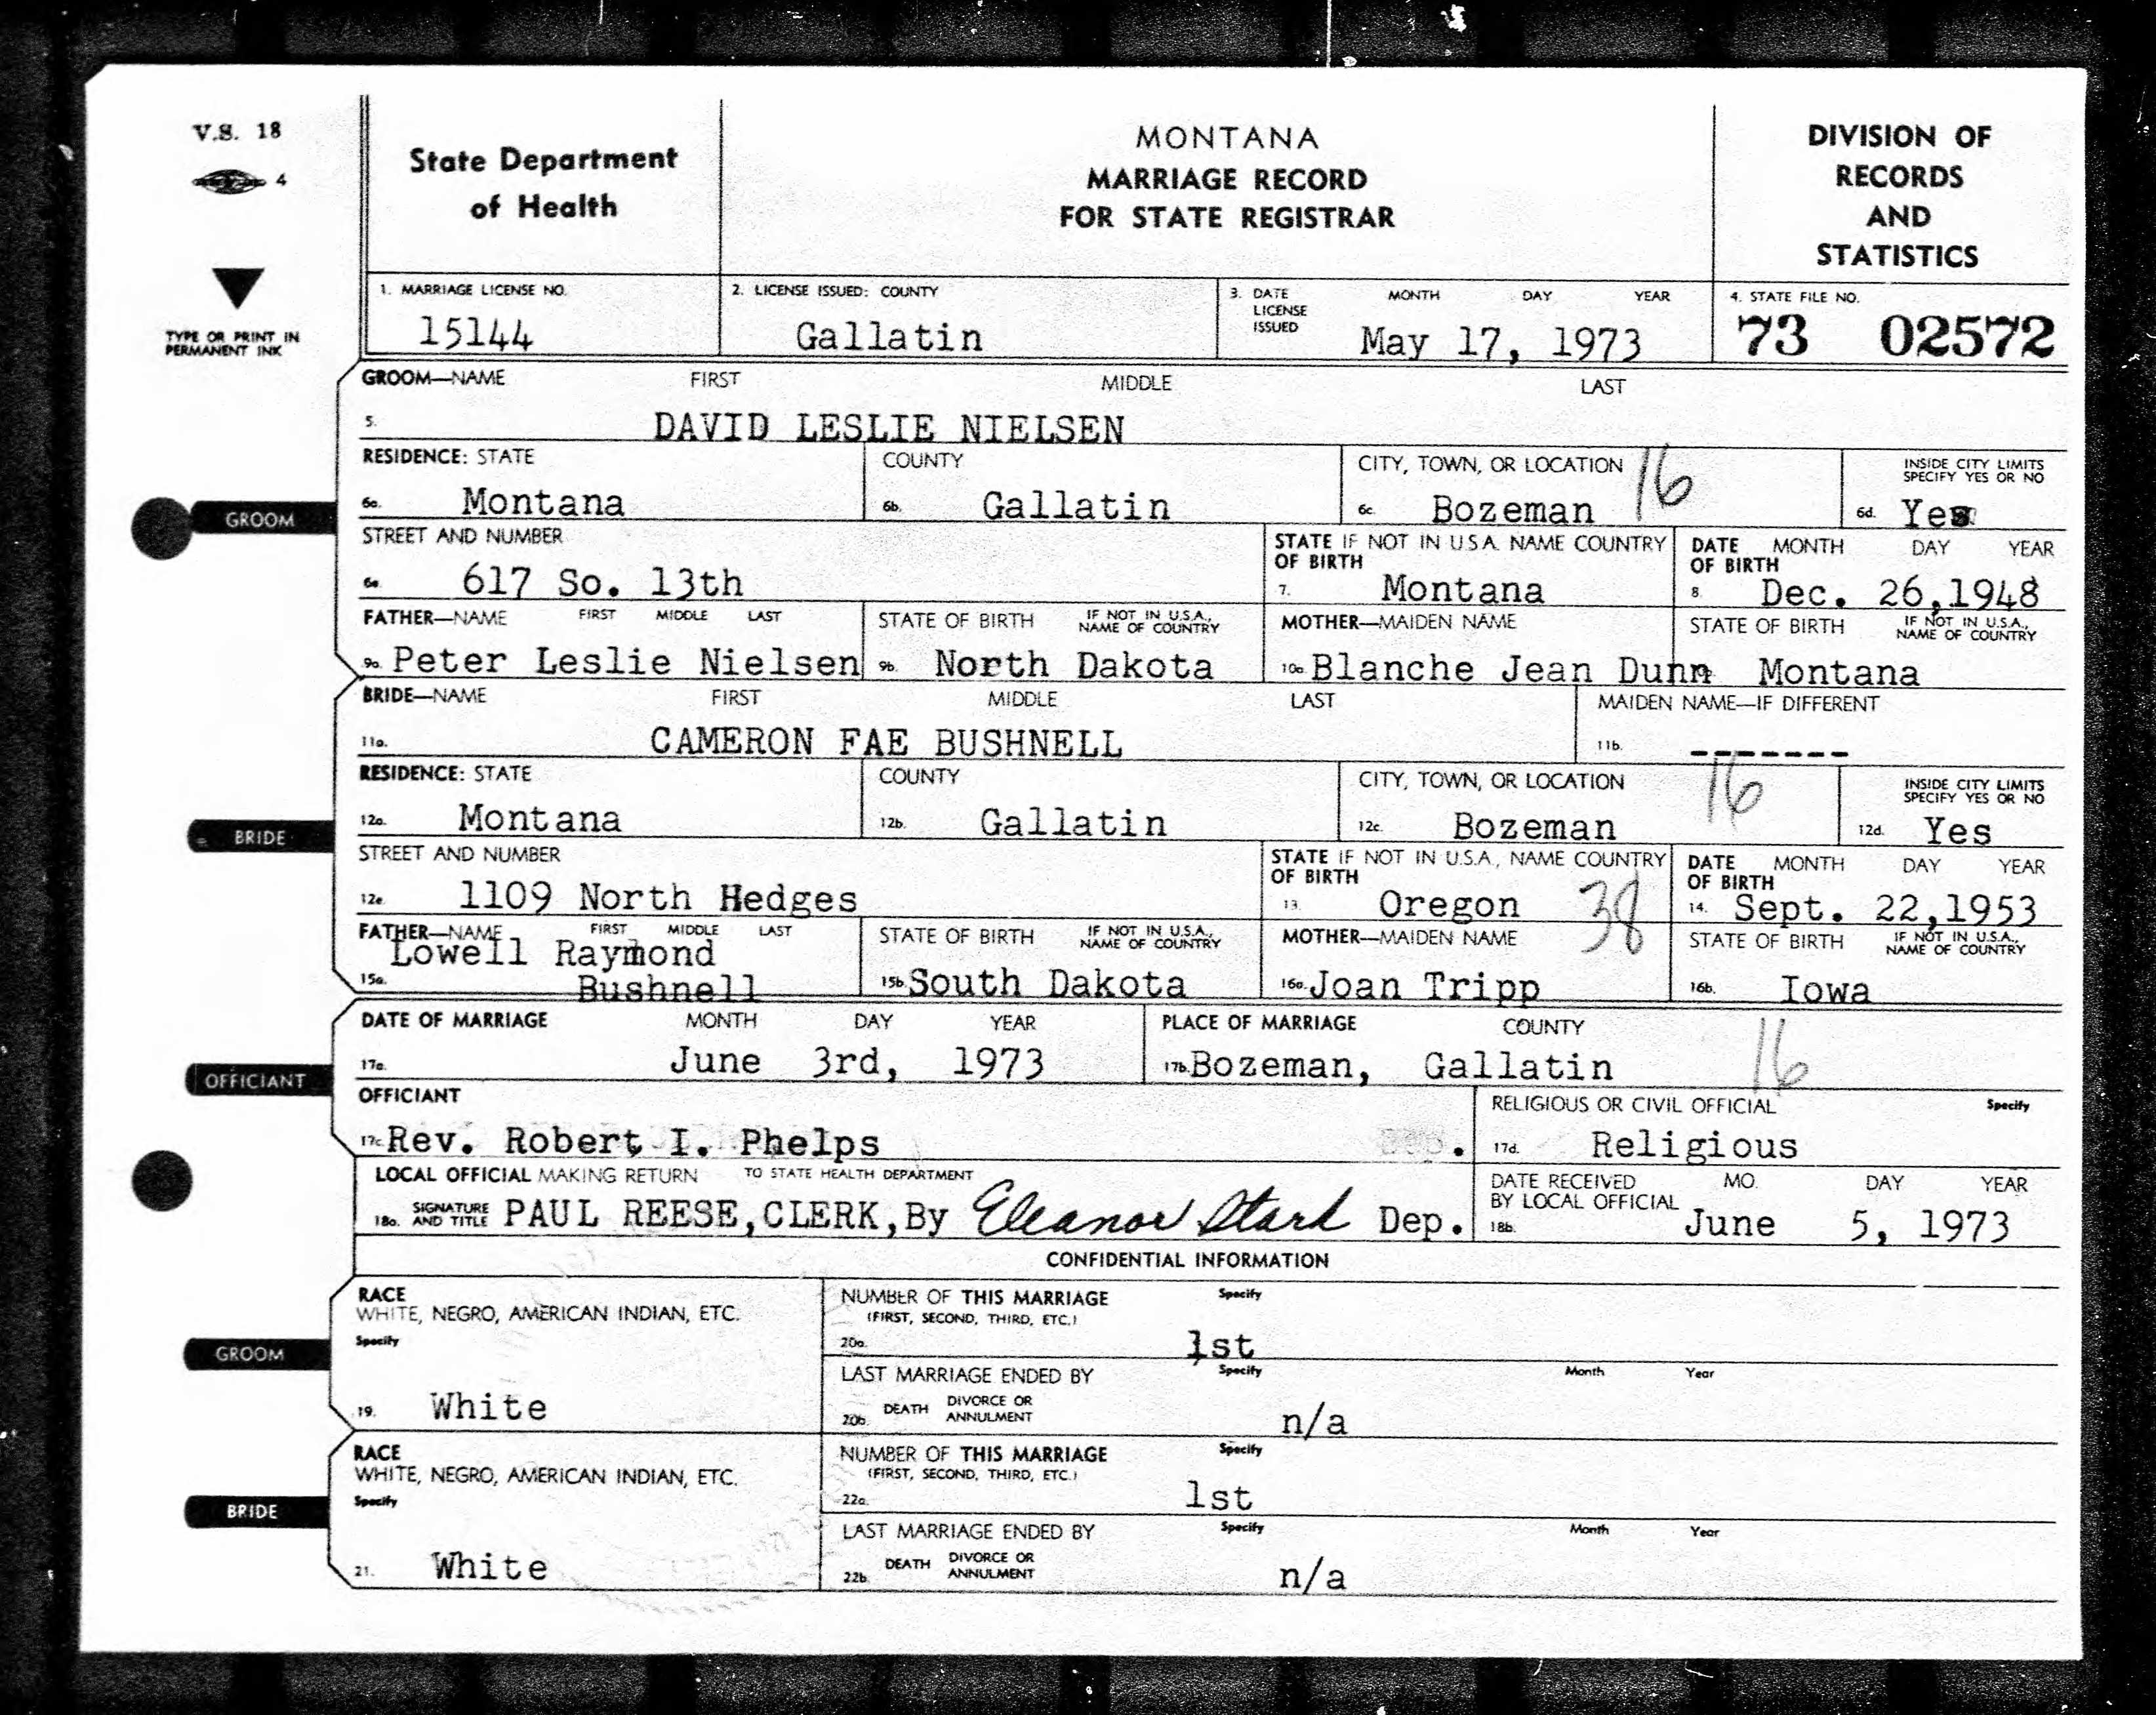 V.S. 18
4
TYPE OR PRINT IN
PERMANENT INK
State Department
of Health
MONTANA
MARRIAGE RECORD
FOR STATE REGISTRAR
DIVISION OF
RECORDS
AND
STATISTICS
1. MARRIAGE LICENSE NO.
15144
2. LICENSE ISSUED: COUNTY
Gallatin
3. DATE LICENSE ISSUED MONTH DAY YEAR
May 17, 1973
4. STATE FILE NO.
73 02572
GROOM
GROOM—NAME FIRST MIDDLE LAST
5. DAVID LESLIE NIELSEN
RESIDENCE: STATE COUNTY CITY, TOWN, OR LOCATION 16 INSIDE CITY LIMITS SPECIFY YES OR NO
6a. Montana 6b. Gallatin 6c. Bozeman 6d. Yes
STREET AND NUMBER STATE OF BIRTH IF NOT IN U.S.A. NAME COUNTRY DATE OF BIRTH MONTH DAY YEAR
6e. 617 So. 13th 7. Montana 8. Dec. 26,1948
FATHER—NAME FIRST MIDDLE LAST STATE OF BIRTH IF NOT IN U.S.A., NAME OF COUNTRY MOTHER—MAIDEN NAME STATE OF BIRTH IF NOT IN U.S.A., NAME OF COUNTRY
9a. Peter Leslie Nielsen 9b. North Dakota 10a. Blanche Jean Dunn Montana
BRIDE
BRIDE—NAME FIRST MIDDLE LAST MAIDEN NAME—IF DIFFERENT
11a. CAMERON FAE BUSHNELL 11b. -------
RESIDENCE: STATE COUNTY CITY, TOWN, OR LOCATION 16 INSIDE CITY LIMITS SPECIFY YES OR NO
12a. Montana 12b. Gallatin 12c. Bozeman 12d. Yes
STREET AND NUMBER STATE OF BIRTH IF NOT IN U.S.A., NAME COUNTRY DATE OF BIRTH MONTH DAY YEAR
12e. 1109 North Hedges 13. Oregon 38 14. Sept. 22,1953
FATHER—NAME FIRST MIDDLE LAST STATE OF BIRTH IF NOT IN U.S.A., NAME OF COUNTRY MOTHER—MAIDEN NAME STATE OF BIRTH IF NOT IN U.S.A., NAME OF COUNTRY
Lowell Raymond
15a. Bushnell 15b. South Dakota 16a. Joan Tripp 16b. Iowa
OFFICIANT
DATE OF MARRIAGE MONTH DAY YEAR PLACE OF MARRIAGE COUNTY
17a. June 3rd, 1973 17b. Bozeman, Gallatin 16
OFFICIANT RELIGIOUS OR CIVIL OFFICIAL Specify
17c. Rev. Robert I. Phelps 17d. Religious
LOCAL OFFICIAL MAKING RETURN TO STATE HEALTH DEPARTMENT DATE RECEIVED BY LOCAL OFFICIAL MO. DAY YEAR
18a. SIGNATURE AND TITLE PAUL REESE, CLERK, By Eleanor Stark Dep. 18b. June 5, 1973
CONFIDENTIAL INFORMATION
GROOM
RACE
WHITE, NEGRO, AMERICAN INDIAN, ETC.
Specify
19. White
NUMBER OF THIS MARRIAGE Specify
(FIRST, SECOND, THIRD, ETC.)
20a. 1st
LAST MARRIAGE ENDED BY Specify Month Year
20b. DEATH DIVORCE OR ANNULMENT n/a
BRIDE
RACE
WHITE, NEGRO, AMERICAN INDIAN, ETC.
Specify
21. White
NUMBER OF THIS MARRIAGE Specify
(FIRST, SECOND, THIRD, ETC.)
22a. 1st
LAST MARRIAGE ENDED BY Specify Month Year
22b. DEATH DIVORCE OR ANNULMENT n/a